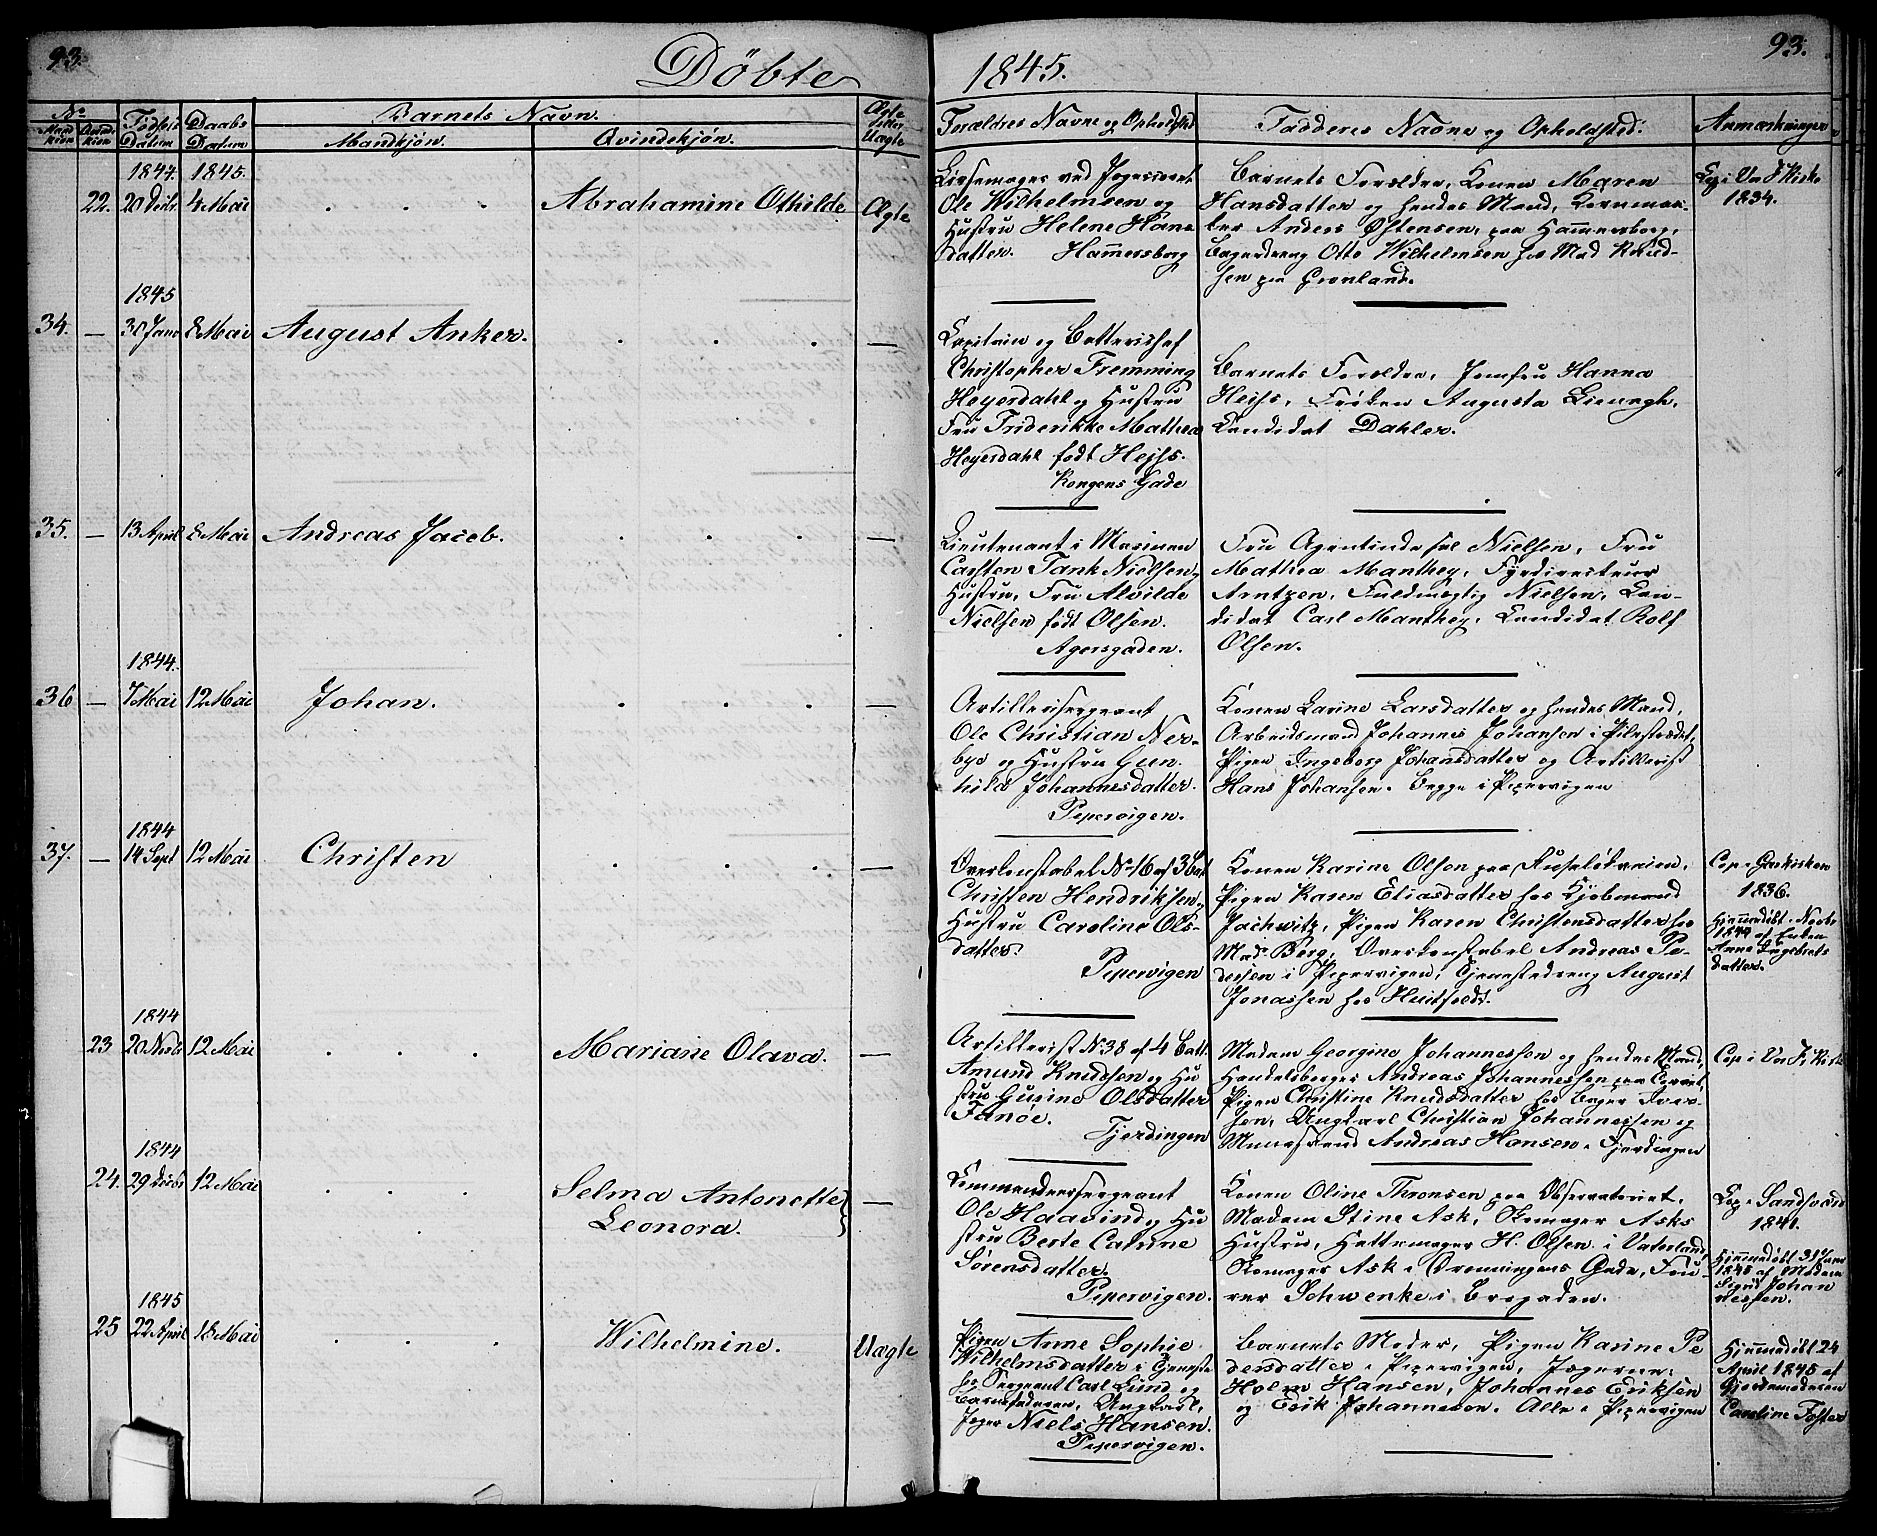 93.
Döbte
1845.
93.
No
Mand kiön
Qvind kiön
Födsels Datum
Daabs Datum
Barnets Navn.
Mandkjön.
Qvindekjön.
Ægte eller Uægte
Forældres Navne og Opholdsted
Fadderes Navne og Opholdsted.
Anmærkninger
1844. 1845.
22. 20 Decbr 4 Mai
Abrahamine Othilde
Ægte
Ole Wilhelmsen og
Hustru Helene Hans
datter. Hammersborg
Barnets Forældre, Konen Maren
Hansdatter og hendes Mand,
Anders Østensen, paa Hammersborg,
Bagerdreng Otto Wilhelmsen hos Mad Knud-
sen paa Grønland.
1834.
1845
34. — 30 Janr 8 Mai August Anker. —
Capitain og Batterichef
Christopher Fremming
Heyerdahl og Hustru
Fru Friderikke Mathea
Heyerdahl født Heiss.
Kongens Gade
Barnets Forældre, Jomfru Hanna
Heiss, Frøken Augusta
Candidat Dahler.
35. — 13 April 8 Mai Andreas Jacob. —
Lieutenant i Marinen
Carsten Tank Nielsen og
Hustru, Fru Alvilde
Nielsen født Olsen.
Agersgaden.
Fru Agentinde Nielsen, Fru
Mathea Manthey, Fyrdirecteur
Arntzen, Fuldmægtig Nielsen, Can-
didat Carl Manthey, Candidat Rolf
Olsen.
1844.
36 — 7 Mai 12 Mai Johan. —
Artillerisergeant
Ole Christian Ner-
bye og Hustru Gun
hild Johannesdatter.
Pipervigen.
Konen Karine Larsdatter og hendes Mand,
Arbeidsmand Johannes Johansen i Pilestrædet,
Pigen Ingeborg Johansdatter og Artillerist
Hans Johansen. Begge i Pipervigen
1844
37. — 14 Sept 12 Mai Christen —
Overkonstabel No 16 af 3 Bat
Christen Hendriksen og
Hustru Caroline Ols-
datter.
Pipervigen
Konen Karine Olsen paa Ruseløkveien,
Pigen Karen Eliasdatter hos Kjøbmand
Jachwitz, Pigen Karen Christensdatter hos
Mad. Berg, Overkonstabel Andreas Pe-
dersen i Pipervigen, Tjenestedreng August
Jonassen hos Huitfeldt.
Cop i Garkirken
1836.
Hjemmedøbt i Novbr
1844 af Enken
Anne Ingebrets
datter.
1844
23 20 Novbr 12 Mai
Mariane Olava. —
Artillerist No 38 af 4 Batt.
Amund Knudsen og Hu
stru Gurine Olsdatter
Fanøe.
Fjerdingen
Madam Georgine Johannessen og hendes Mand,
Handelsborger Andreas Johannessen paa
Pigen Christine Knudsdatter hos Bager Iver-
sen, Ungkarl Christian Johannessen og
Andreas Hansen i Fjerdingen
Cop i Vor F. Kirke
1844
24. 29 Decbr 12 Mai
Selma Antonette
Leonora. —
Kommandeersergeant
Ole Haavind og Hu
stru Berte Catrine
Sørensdatter.
Pipervigen.
Konen Oline Thronsen paa Observatoriet,
Madam Stine Ask, Skomager Asks
Hustru, Hattemager H. Olsen i Vaterland,
Skomager Ask i Dronningens Gade,
Schwenke i Brogaden.
Cop i Sandsværd
1841.
Hjemmedøbt 31 Janr
1845 af Madam
Sigrid Johan
nessen.
1845
25 22 April 18 Mai
Wilhelmine.
Uægte
Pigen Anne Sophie
Wilhelmsdatter i Tjeneste
hos Sergeant Carl Lund og
Barnefaderen, Ungkarl,
Jæger Niels Hansen.
Pipervigen.
Barnets Moder, Pigen Karine Pe
dersdatter i Pipervigen, Jægerne:
Holm Hansen, Johannes Eriksen
og Erik Johannesen. Alle i Pipervigen
Hjemmedøbt 24
April 1845 af
Gjordemoderen
Caroline Foster